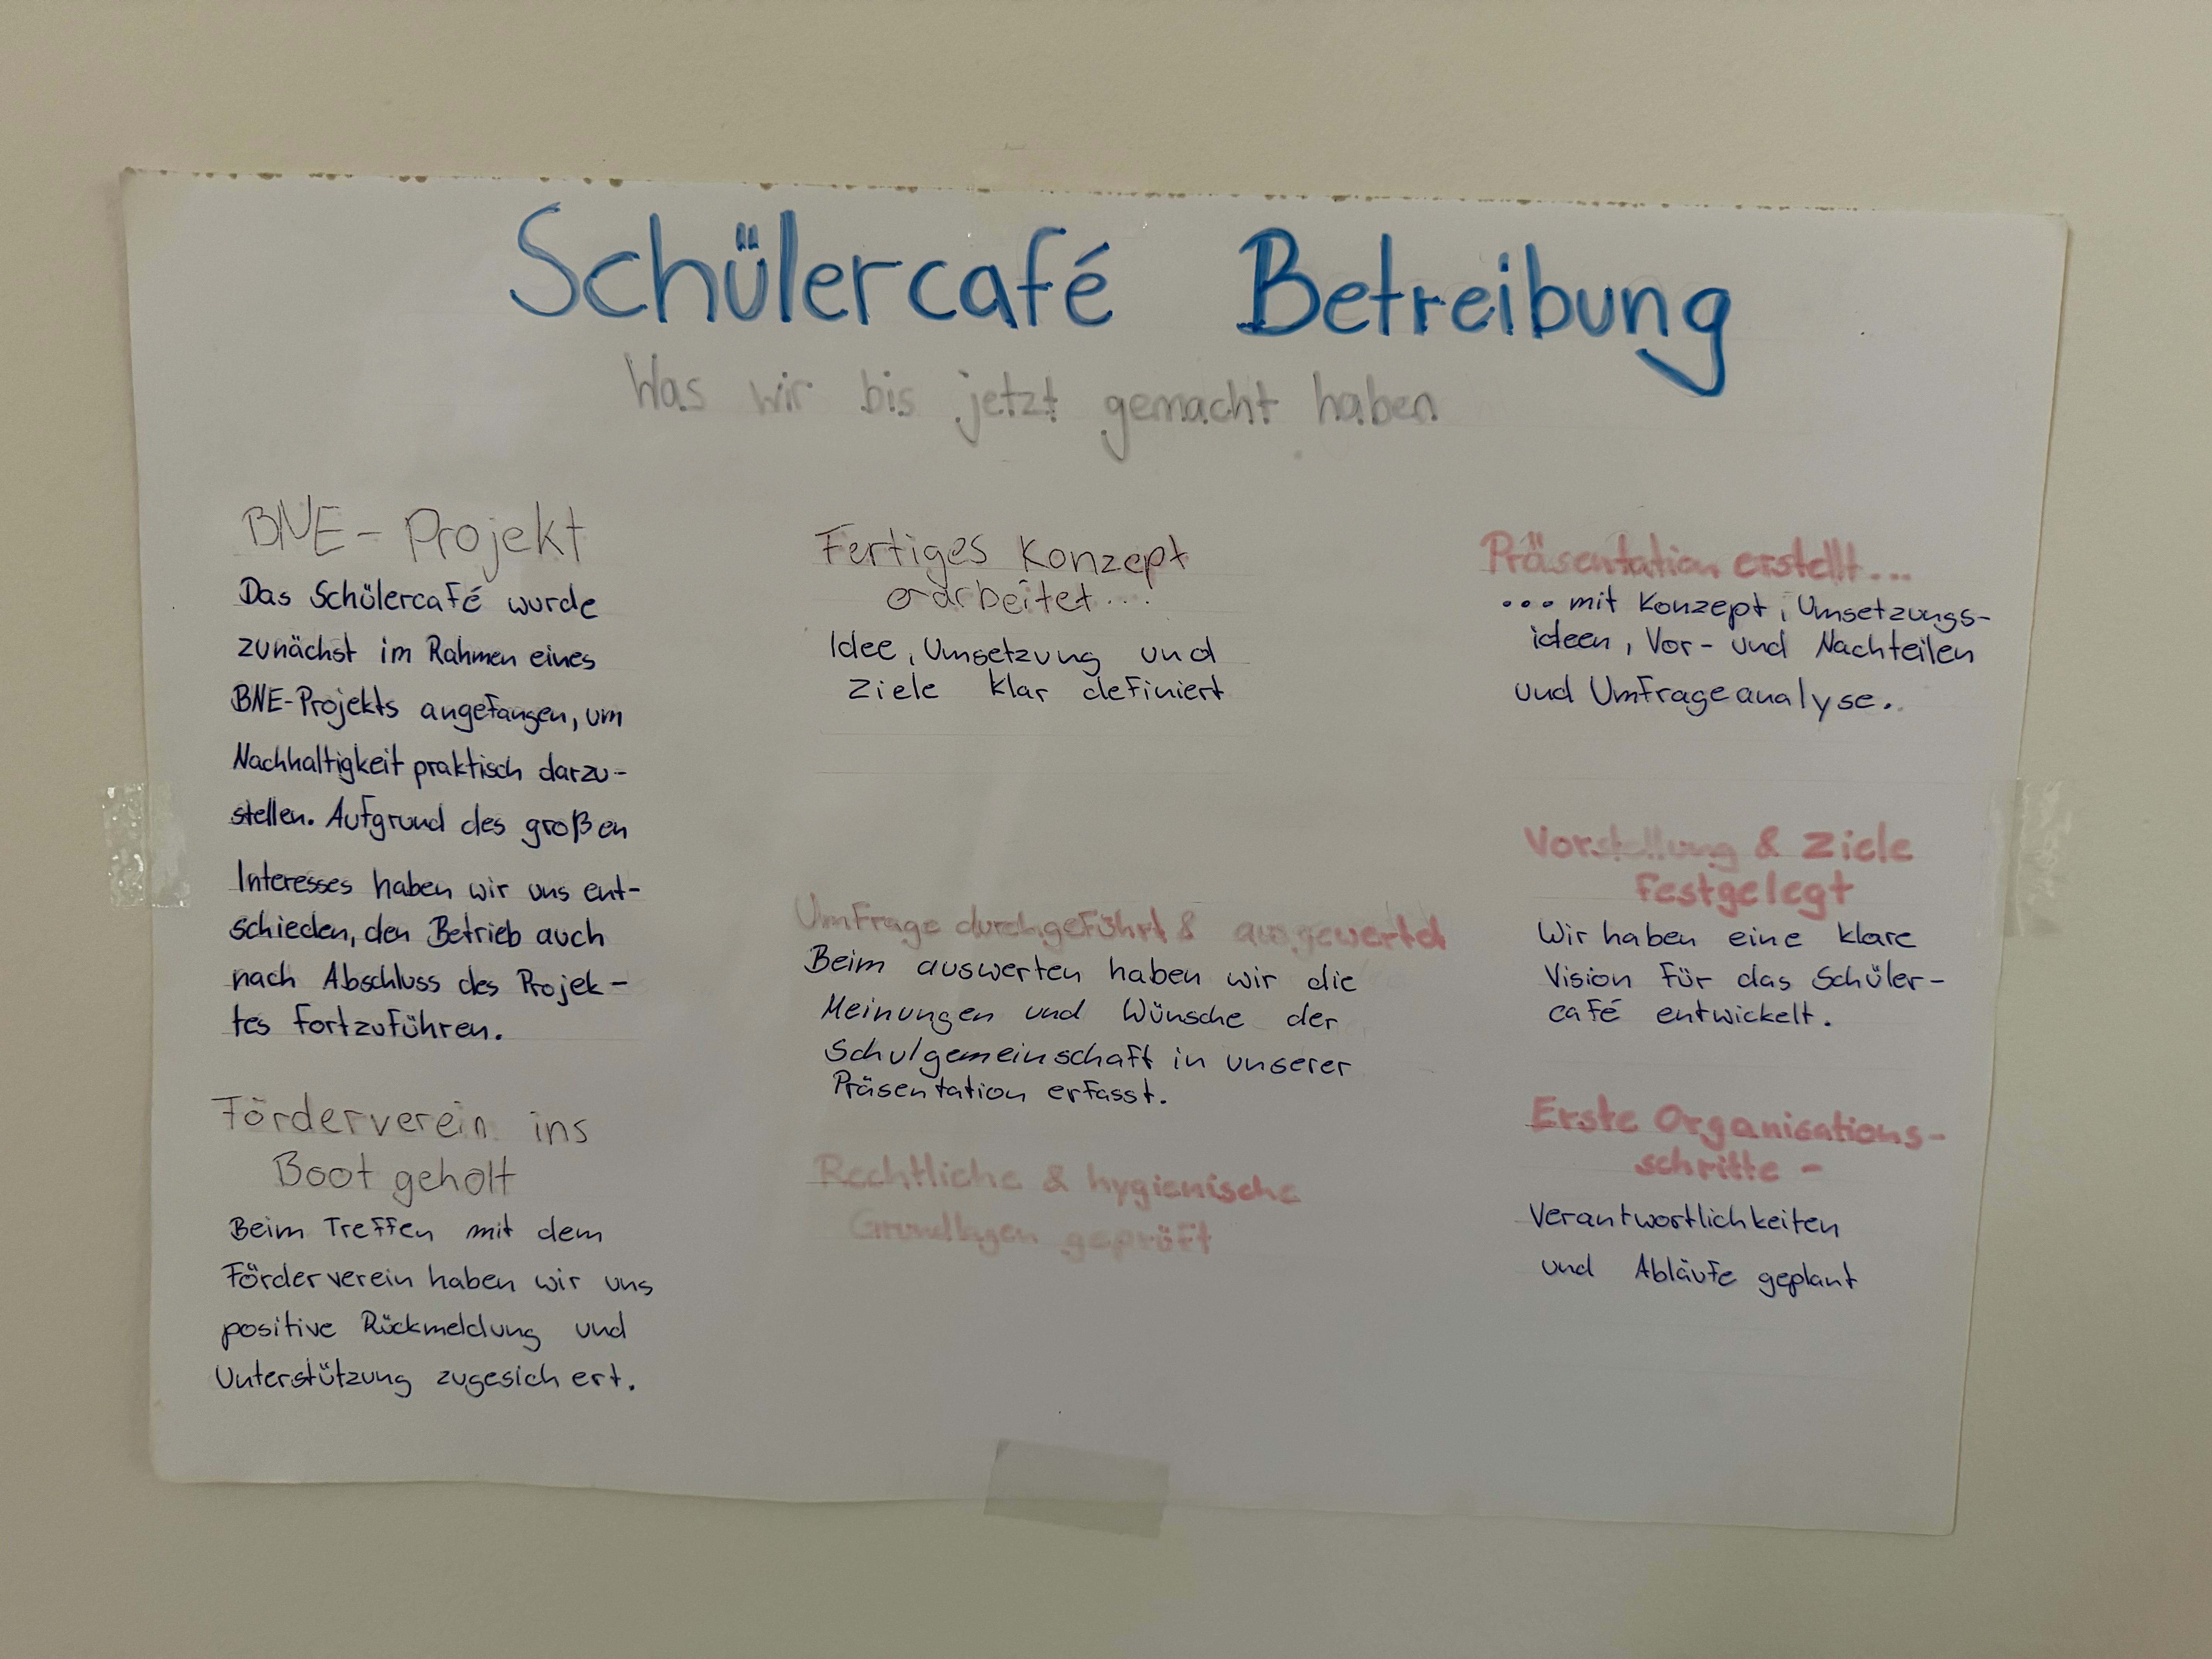 Schülercafé Betreibung
Was wir bis jetzt gemacht haben
BNE-Projekt
Das Schülercafé wurde
zunächst im Rahmen eines
BNE-Projekts angefangen, um
Nachhaltigkeit praktisch darzu-
stellen. Aufgrund des großen
Interesses haben wir uns ent-
schieden, den Betrieb auch
nach Abschluss des Projek-
tes fortzuführen.
Förderverein ins
Boot geholt
Beim Treffen mit dem
Förderverein haben wir uns
positive Rückmeldung und
Unterstützung zugesichert.
Fertiges Konzept
erarbeitet...
Idee, Umsetzung und
Ziele klar definiert
Umfrage durchgeführt & ausgewertet
Beim auswerten haben wir die
Meinungen und Wünsche der
Schulgemeinschaft in unserer
Präsentation erfasst.
Rechtliche & hygienische
Grundlagen geprüft
Präsentation erstellt...
...mit Konzept, Umsetzungs-
ideen, Vor- und Nachteilen
und Umfrageanalyse.
Vorstellung & Ziele
festgelegt
Wir haben eine klare
Vision für das Schüler-
café entwickelt.
Erste Organisations-
schritte -
Verantwortlichkeiten
und Abläufe geplant